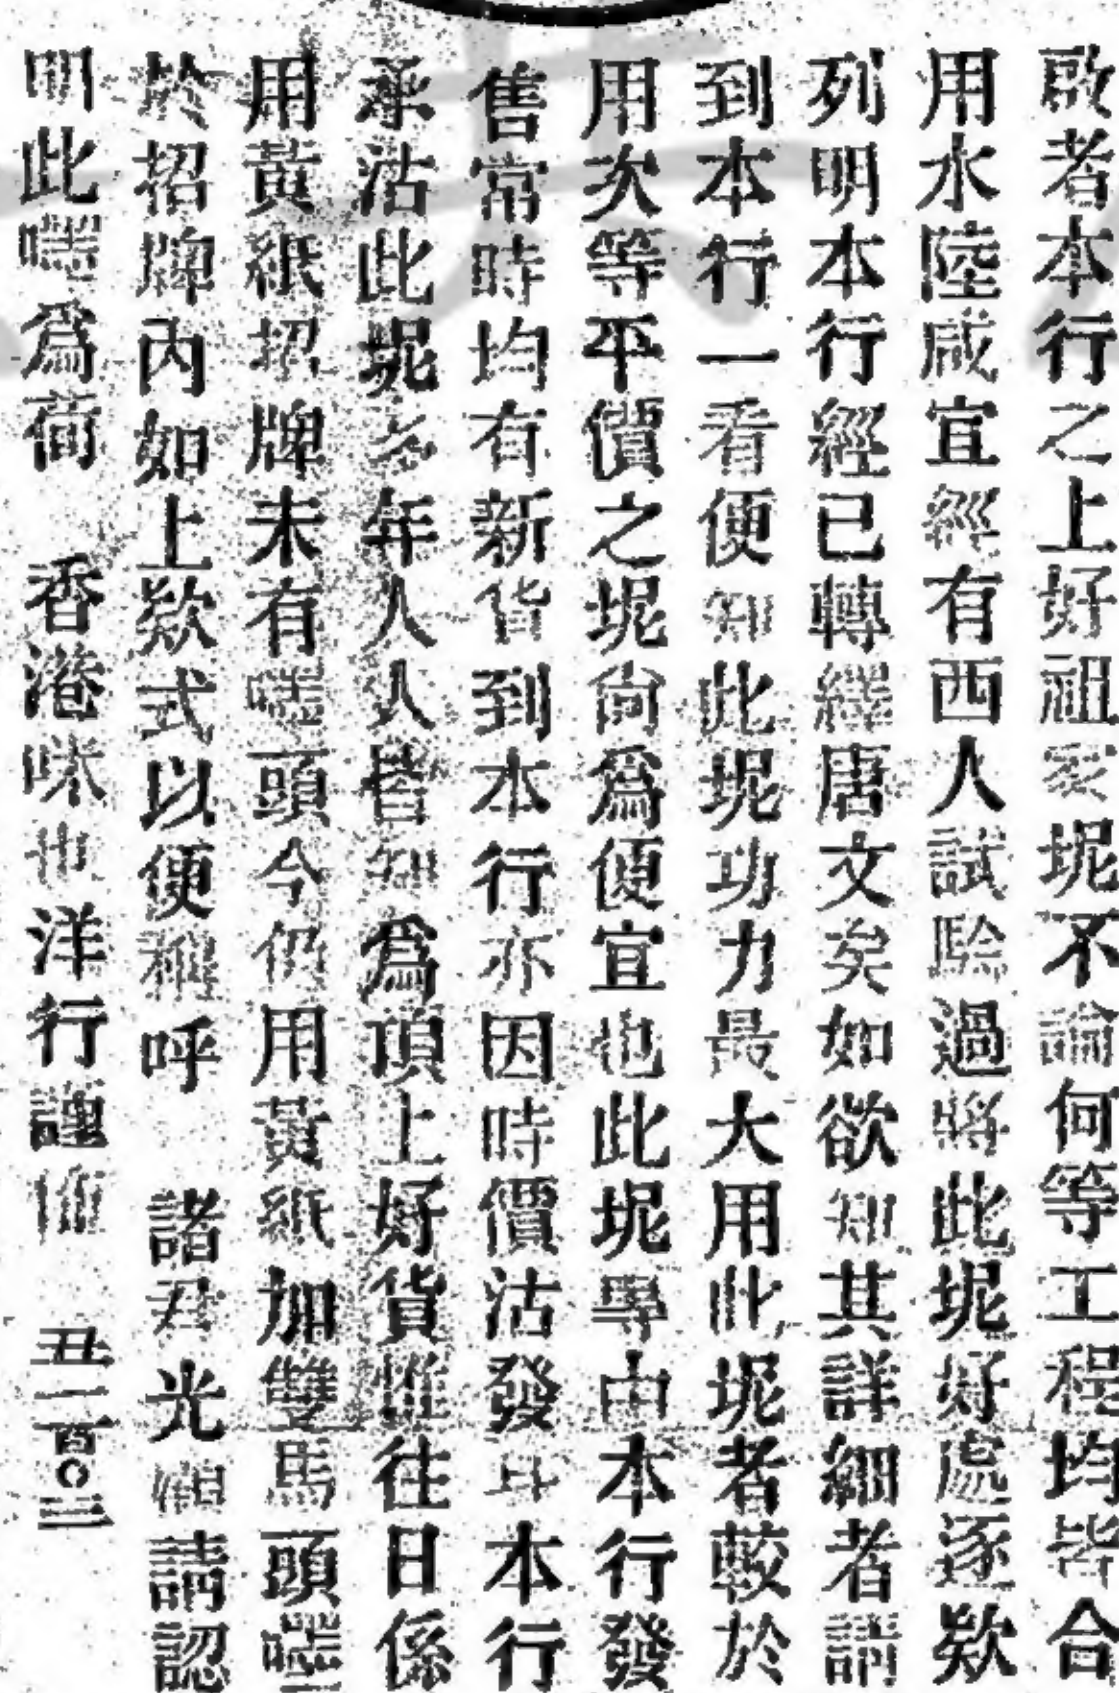 啟者本行之上好祖家坭不論何等工程均皆合
用水陸咸宜經有西人試驗過將此坭好處逐欵
列明本行經已轉繹唐文矣如欲知其詳細者請
到本行一看便知此坭功力最大用此坭者較於
用次等平價之坭尙爲便宜也此坭專由本行發
售常時均有新貨到本行亦因時價沽發耳本行
承沽此坭多年人人皆知爲頂上好貨惟往日係
用黃紙招牌未有嘜頭今仍用黃紙加雙馬頭嘜
於招牌內如上欵式以便稱呼 諸君光顧請認
明此嘜爲荷 香港咪也洋行謹啟 丑一百〇三